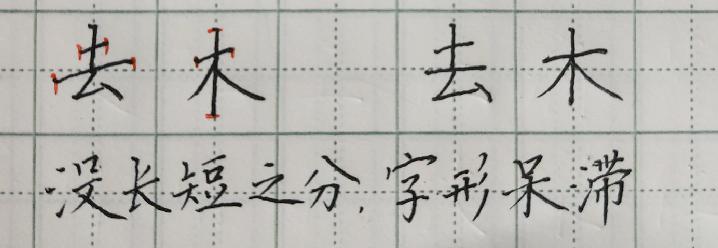 去 木 去 木
没长短之分,字形呆滞